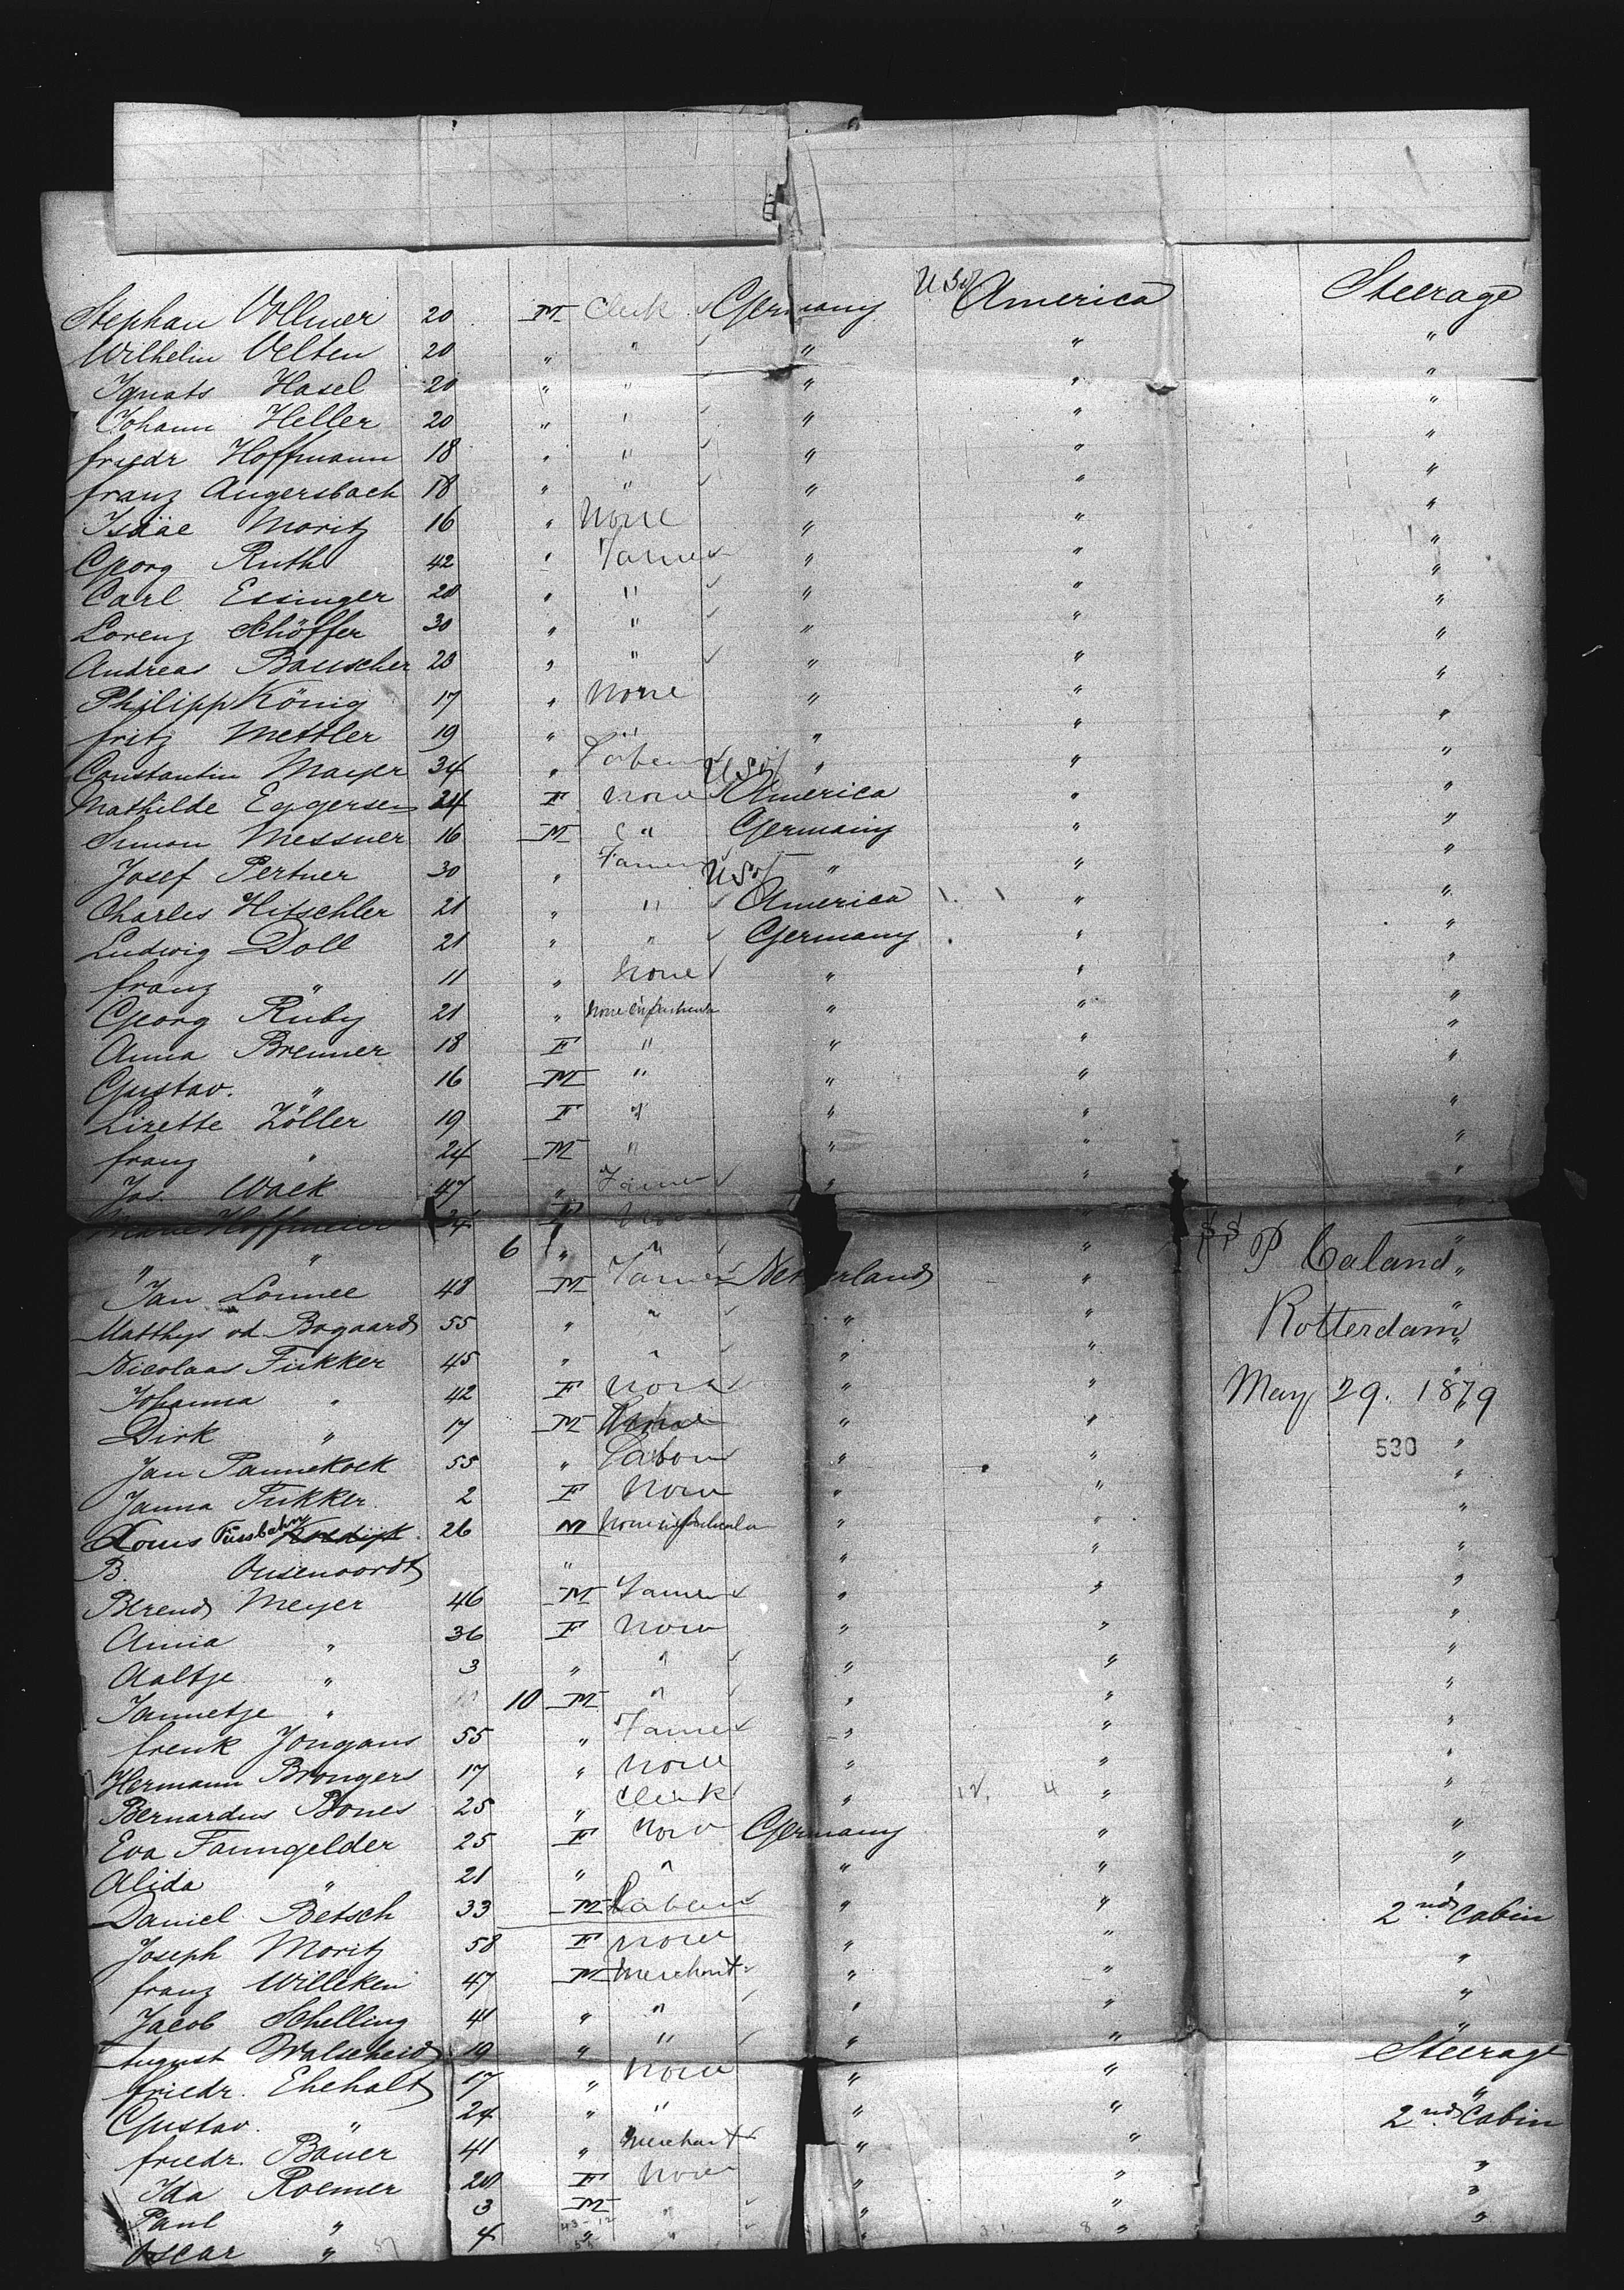 Stephan Vollmer 20 M Clerk Germany U S of America Steerage
Wilhelm Velten 20 " " " " "
Ignats Hasel 20 " " " " "
Johann Heller 20 " " " " "
Friedr Hoffmann 18 " " " " "
Franz Angersbach 18 " " " " "
Isääc Moritz 16 " None " " "
Georg Ruth 42 " Farmer " " "
Carl Essinger 28 " " " " "
Lorenz Schöffer 30 " " " " "
Andreas Bauscher 23 " " " " "
Philipp König 17 " None " " "
Fritz Mettler 19 " " " " "
Constantin Mayer 34 " " " "
Mathilde Eggersen 24 F None U S of America " "
Simon Messner 16 M " Germany " "
Josef Pertner 30 " Farmer " " "
Charles Hitschler 21 " " U S of America " "
Ludwig Doll 21 " " Germany " "
Franz " 11 " None " " "
Georg Ruby 21 " None in particular " " "
Anna Brenner 18 F " " " "
Gustav. " 16 M " " " "
Lizette Zöller 19 F " " " "
Franz " 24 M " " " "
Jos. Wack 47 " Farmer " " "
Marie Hoffmeier 34 F None " "
" " 6 " " " "
SS P Caland
Jan Lonnee 48 M Farmer Netherland " "
Matthys vd Bogaard 55 " " " " "
Rotterdam
Nicolaas Fikker 45 " " " " "
Johanna " 42 F None " "
May 29. 1879
Dirk " 17 M " " "
530
Jan Pannekoek 55 " Labour " " "
Janna Fikker 2 F None " " "
Louis Füssbahn 26 M None in particular " " "
B. Ousenoordt " " " "
Berend Meyer 46 M Farmer " " "
Anna " 36 F None " " "
Aaltje " 3 " " " " "
Jannetje " 10 M " " " "
Frenk Jongans 55 " Farmer " " "
Hermann Brongers 17 " None " " "
Bernardus Bones 25 " Clerk " " "
Eva Tanngelder 25 F None Germany " "
Alida " 21 " " " " "
Daniel Betsch 33 M Labour " " 2nd Cabin
Joseph Moritz 58 F None " " "
Franz Willeken 47 M Merchant " " "
Jacob Schelling 41 " " " " "
August Walscheid 19 " " " " Steerage
Friedr. Ehehalt 17 " None " " "
Gustav. " 24 " " " " 2nd Cabin
Friedr. Bauer 41 " Merchant " "
Ida Roemer 28 F None " " "
Paul " 3 M " " " "
Oscar " 4 " " " " "